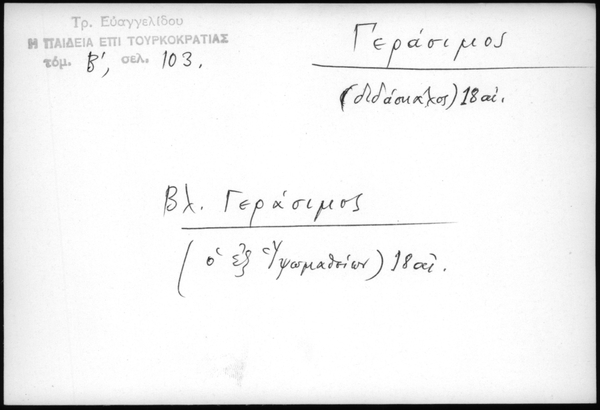 Τρ. Εὐαγγελίδου
Η ΠΑΙΔΕΙΑ ΕΠΙ ΤΟΥΡΚΟΚΡΑΤΙΑΣ
τόμ. Β', σελ. 103.
Γεράσιμος
(διδάσκαλος) 18 αἰ.
Βλ. Γεράσιμος
(ὁ ἐξ Ὑψωμαθείων) 18 αἰ.